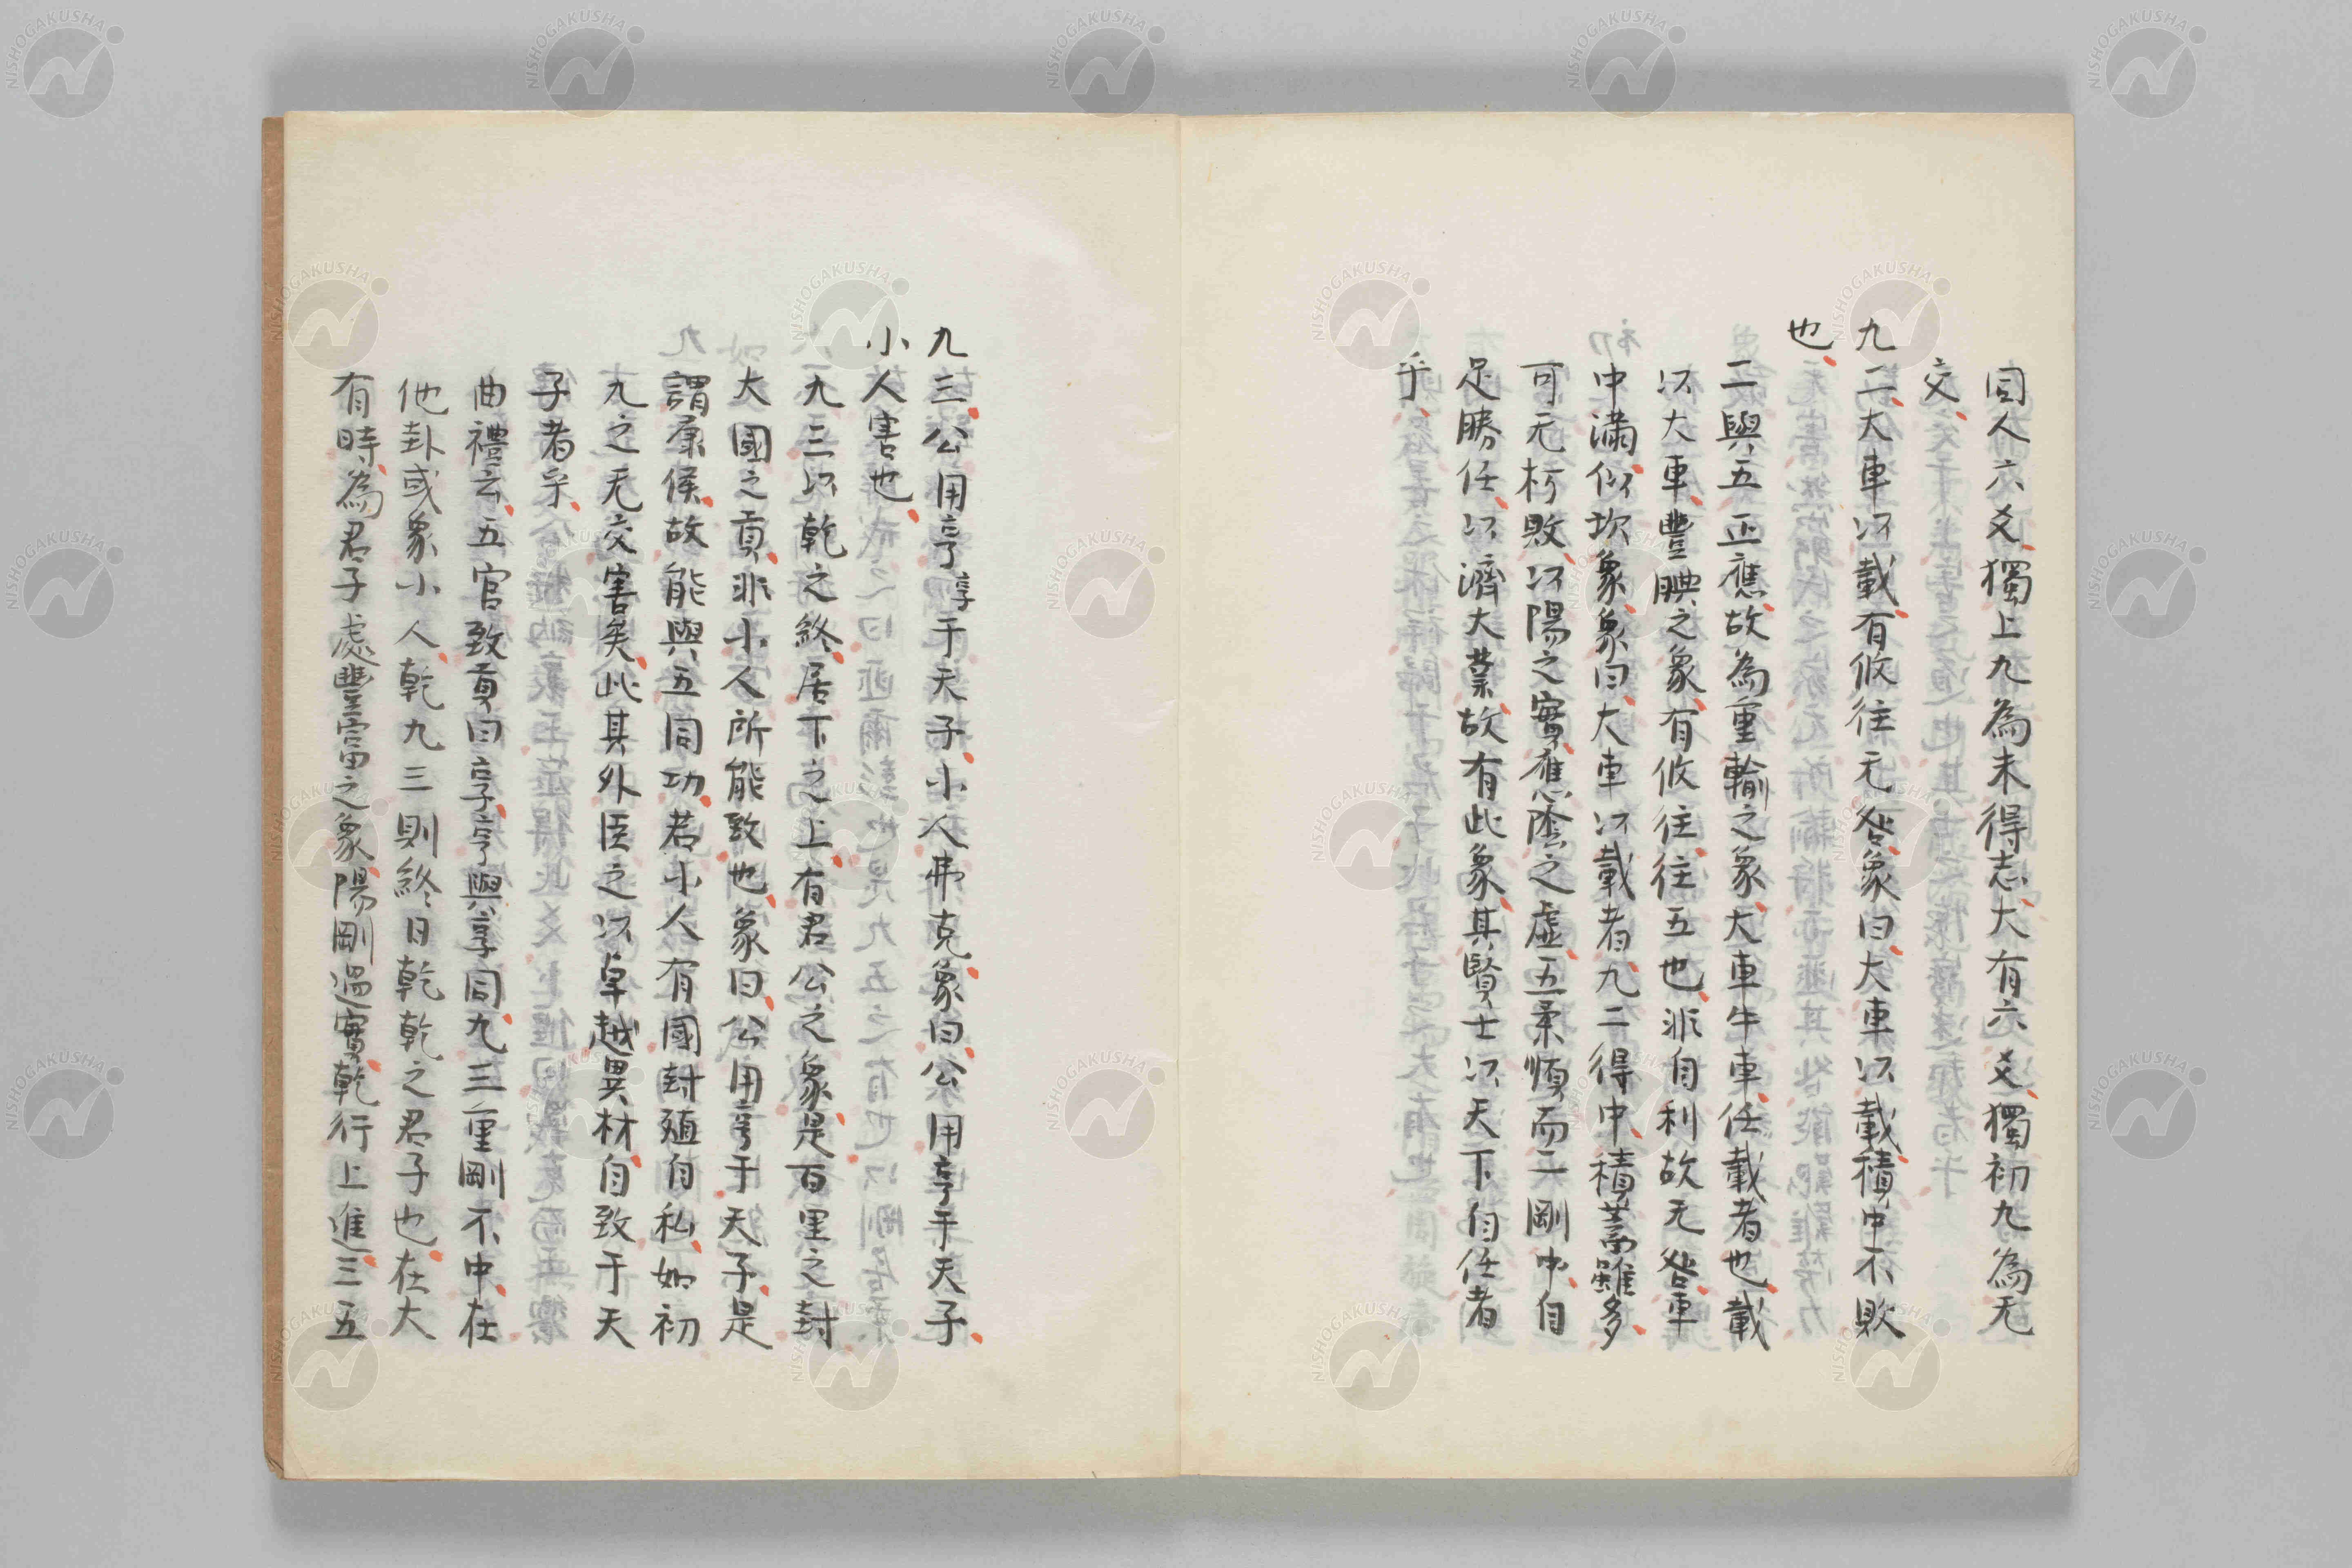 同人六爻、獨上九為未得志、大有六爻、獨初九為无
交、
九二、大車以載、有攸往、无咎、象曰、大車以載、積中不敗
也、
二與五正應、故為重輸之象、大車牛車、任載者也、載
以大車、豐腆之象、有攸往、往五也、非自利故无咎、車
中滿、似坎象、象曰、大車以載者、九二得中、積蓄雖多、
可无朽敗、以陽之實、應陰之虛、五柔順而二剛中、自
足勝任、以濟大業、故有此象、其賢士以天下自任者
乎、
九三、公用亨享于天子、小人弗克、象曰、公用亨于天子、
小人害也、
九三以乾之終、居下之上、有君公之象、是百里之封
大國之貢、非小人所能致也、象曰、公用亨于天子、是
謂康侯、故能與五同功、若小人有國封殖自私、如初
九之无交害矣、此其外臣之以卓越異材、自致于天
子者乎、
曲禮云、五官致貢曰享、亨與享同、九三重剛不中、在
他卦或象小人、乾九三則終日乾乾之君子也、在大
有時、為君子處豐富之象、陽剛過實、乾行上進、三五
NISHOGAKUSHA